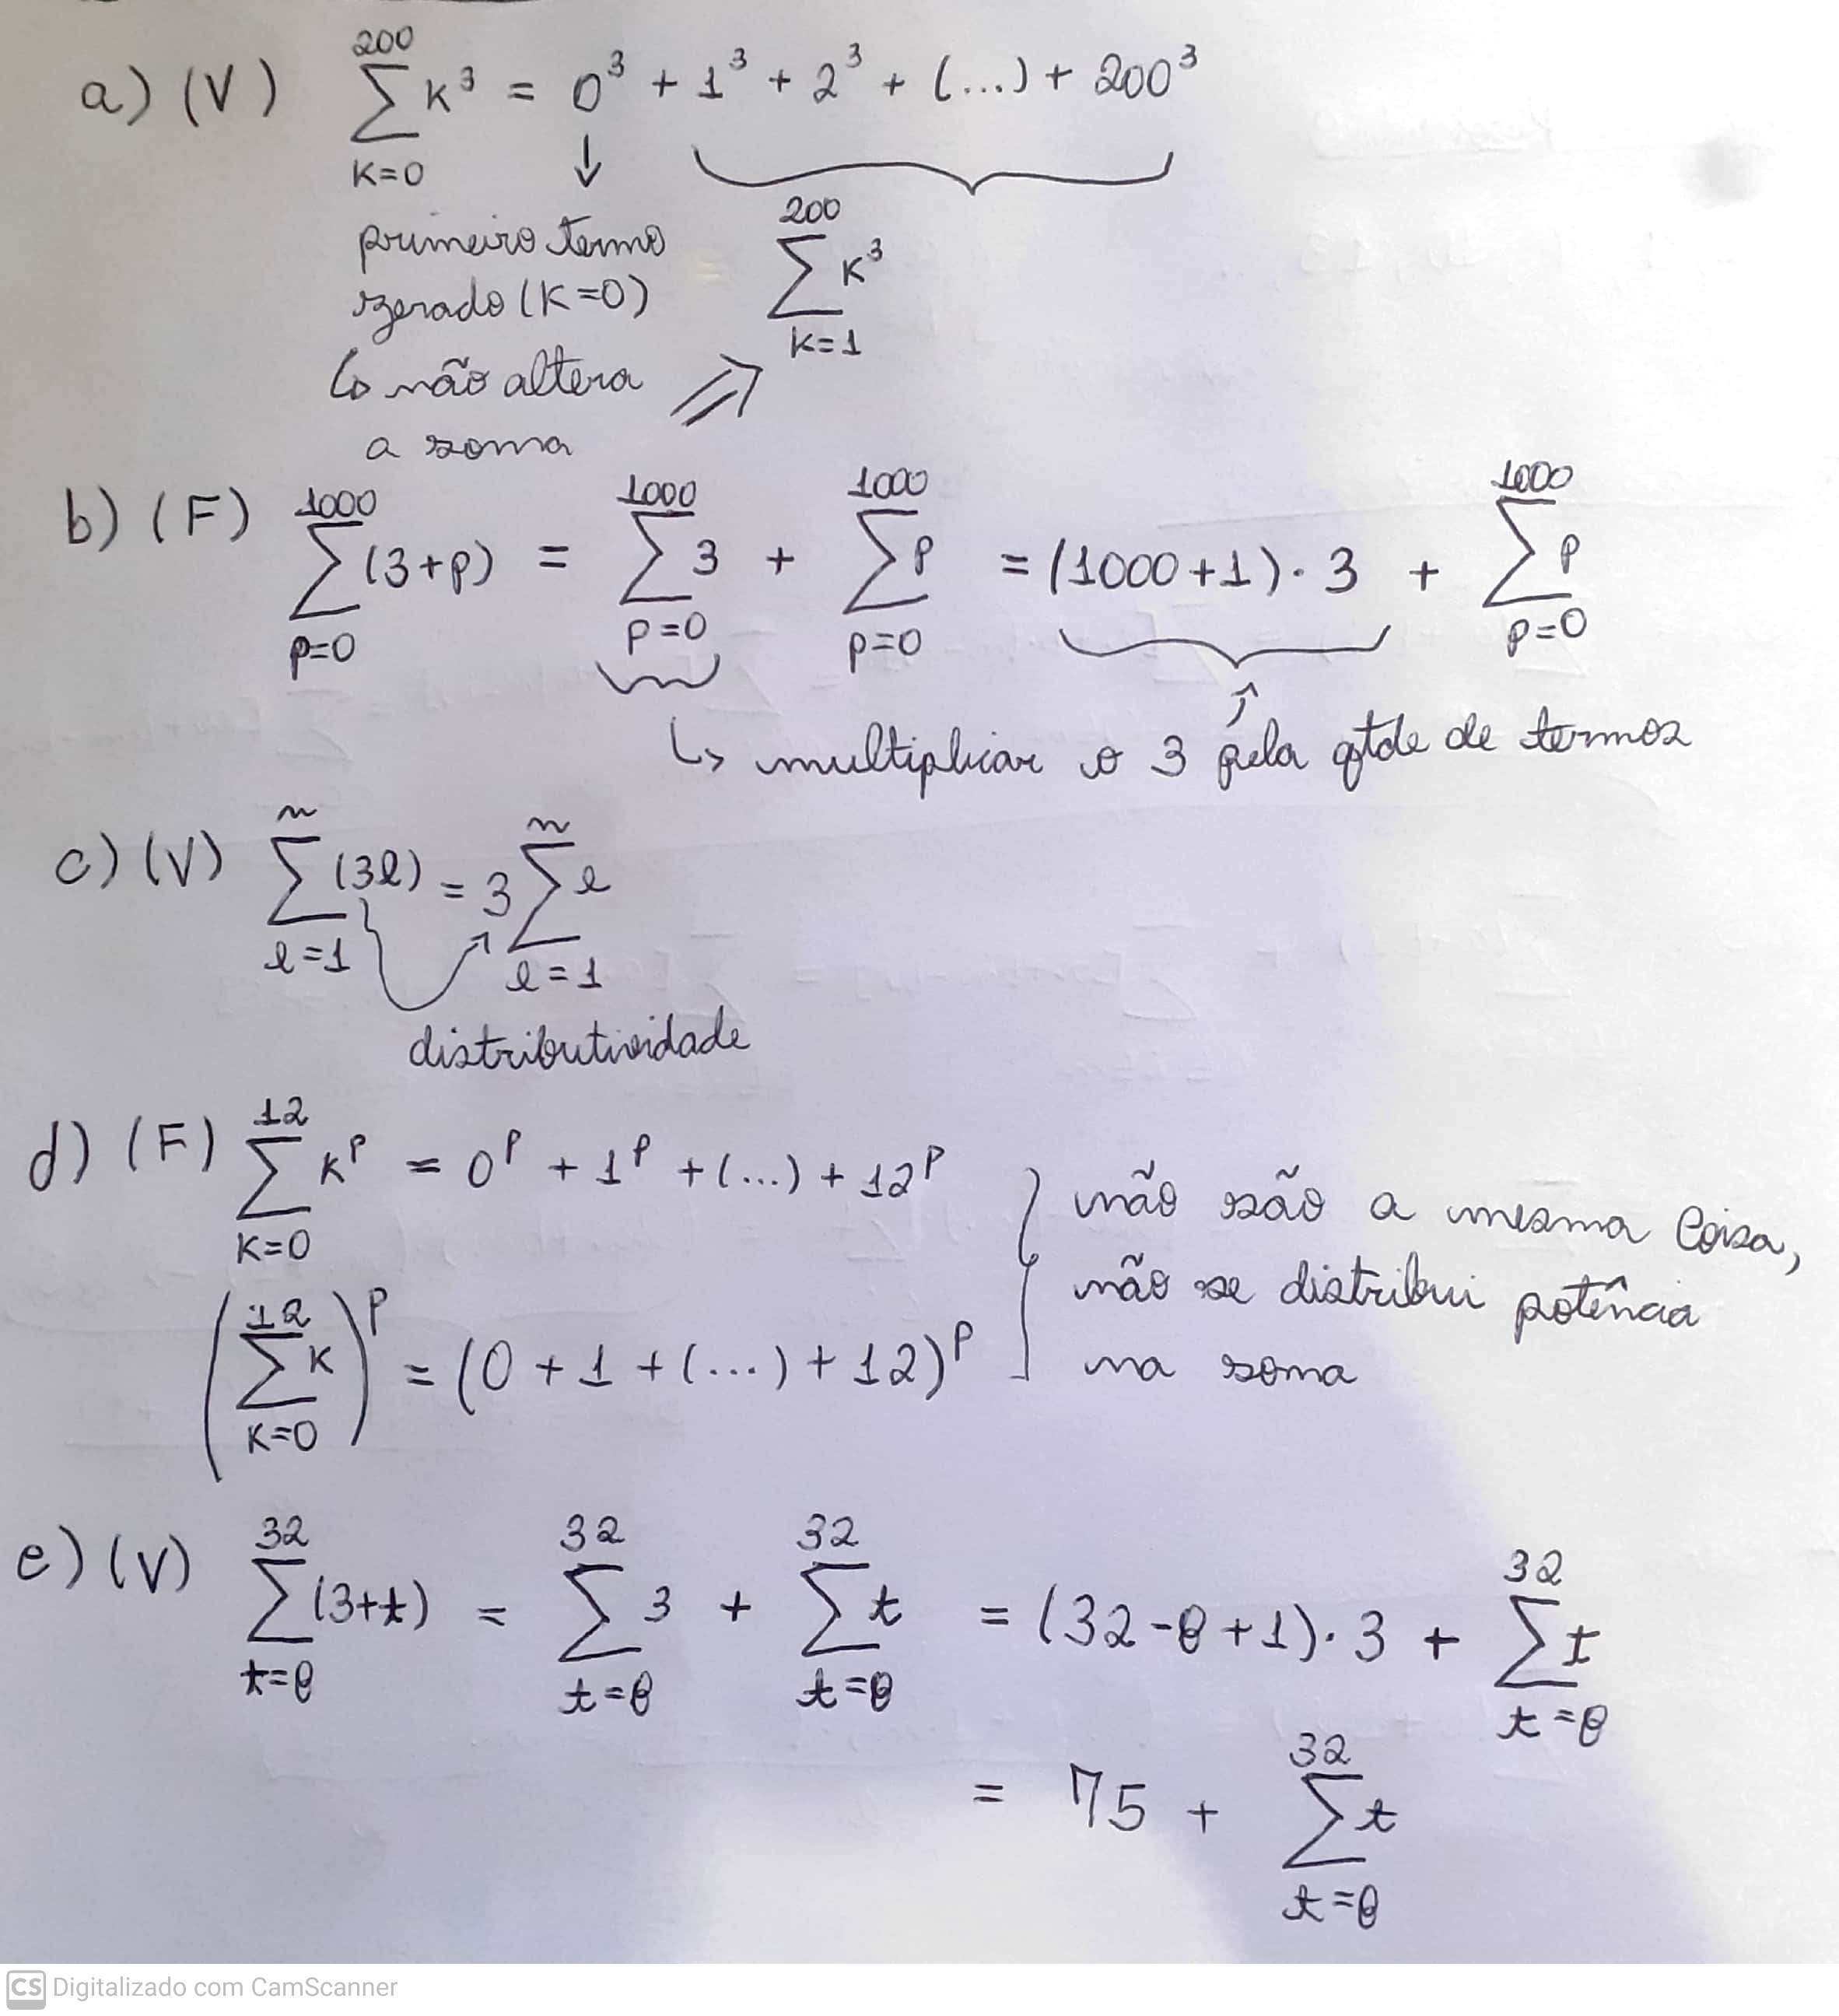 a) (V) ∑_{K=0}^{200} K³ = 0³ + 1³ + 2³ + (...) + 200³
↓
primeiro termo
zerado (K=0)
↳ não altera ⇒ ∑_{K=1}^{200} K³
a soma
b) (F) ∑_{p=0}^{1000} (3+p) = ∑_{p=0}^{1000} 3 + ∑_{p=0}^{1000} p = (1000+1)·3 + ∑_{p=0}^{1000} p
↳ multiplicar o 3 pela qtde de termos
c) (V) ∑_{l=1}^{n} (3l) = 3 ∑_{l=1}^{n} l
distributividade
d) (F) ∑_{K=0}^{12} K^p = 0^p + 1^p + (...) + 12^p
(∑_{K=0}^{12} K)^p = (0 + 1 + (...) + 12)^p
não são a mesma coisa,
não se distribui potência
na soma
e) (V) ∑_{t=8}^{32} (3+t) = ∑_{t=8}^{32} 3 + ∑_{t=8}^{32} t = (32-8+1)·3 + ∑_{t=8}^{32} t
= 75 + ∑_{t=8}^{32} t
CS Digitalizado com CamScanner